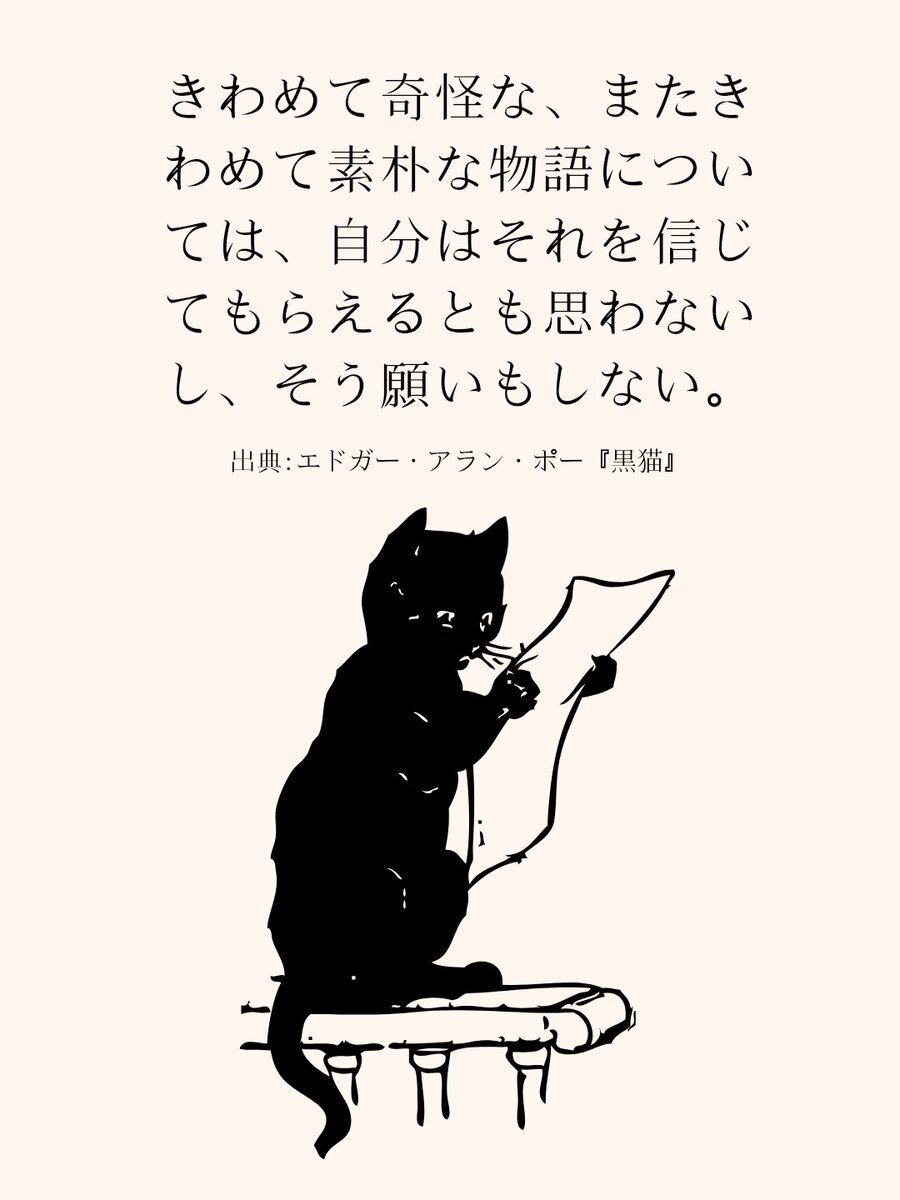 きわめて奇怪な、またき
わめて素朴な物語につい
ては、自分はそれを信じ
てもらえるとも思わない
し、そう願いもしない。
出典:エドガー・アラン・ポー『黒猫』